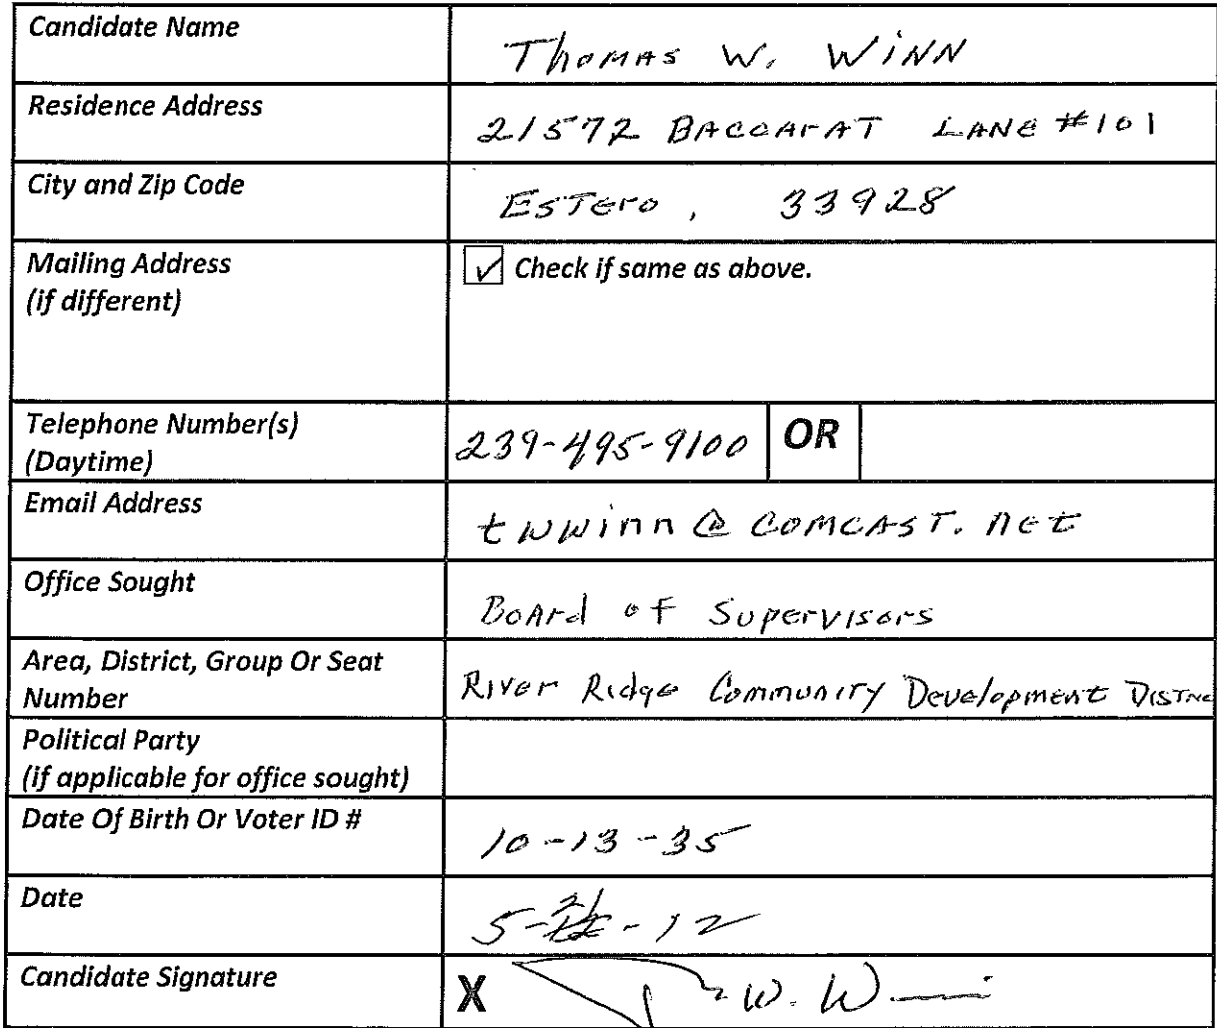 Candidate Name
Thomas W. Winn
Residence Address
21572 Baccarat Lane #101
City and Zip Code
Estero, 33928
Mailing Address
(if different)
✓ Check if same as above.
Telephone Number(s)
(Daytime)
239-495-9100 OR
Email Address
twwinn@comcast.net
Office Sought
Board of Supervisors
Area, District, Group Or Seat
Number
River Ridge Community Development Distric
Political Party
(if applicable for office sought)
Date Of Birth Or Voter ID #
10-13-35
Date
5- -12
Candidate Signature
X W. Winn